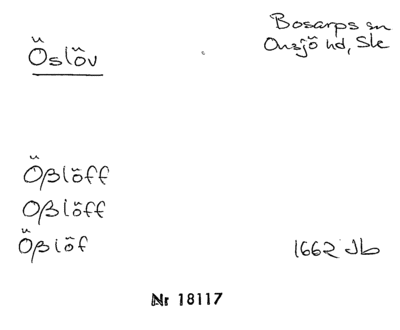 Öslöv
Bosarps sn
Onsjö hd, Ske
Ößlöff
Oßlöff
Ößlöf
1662 Jb
Nr 18117